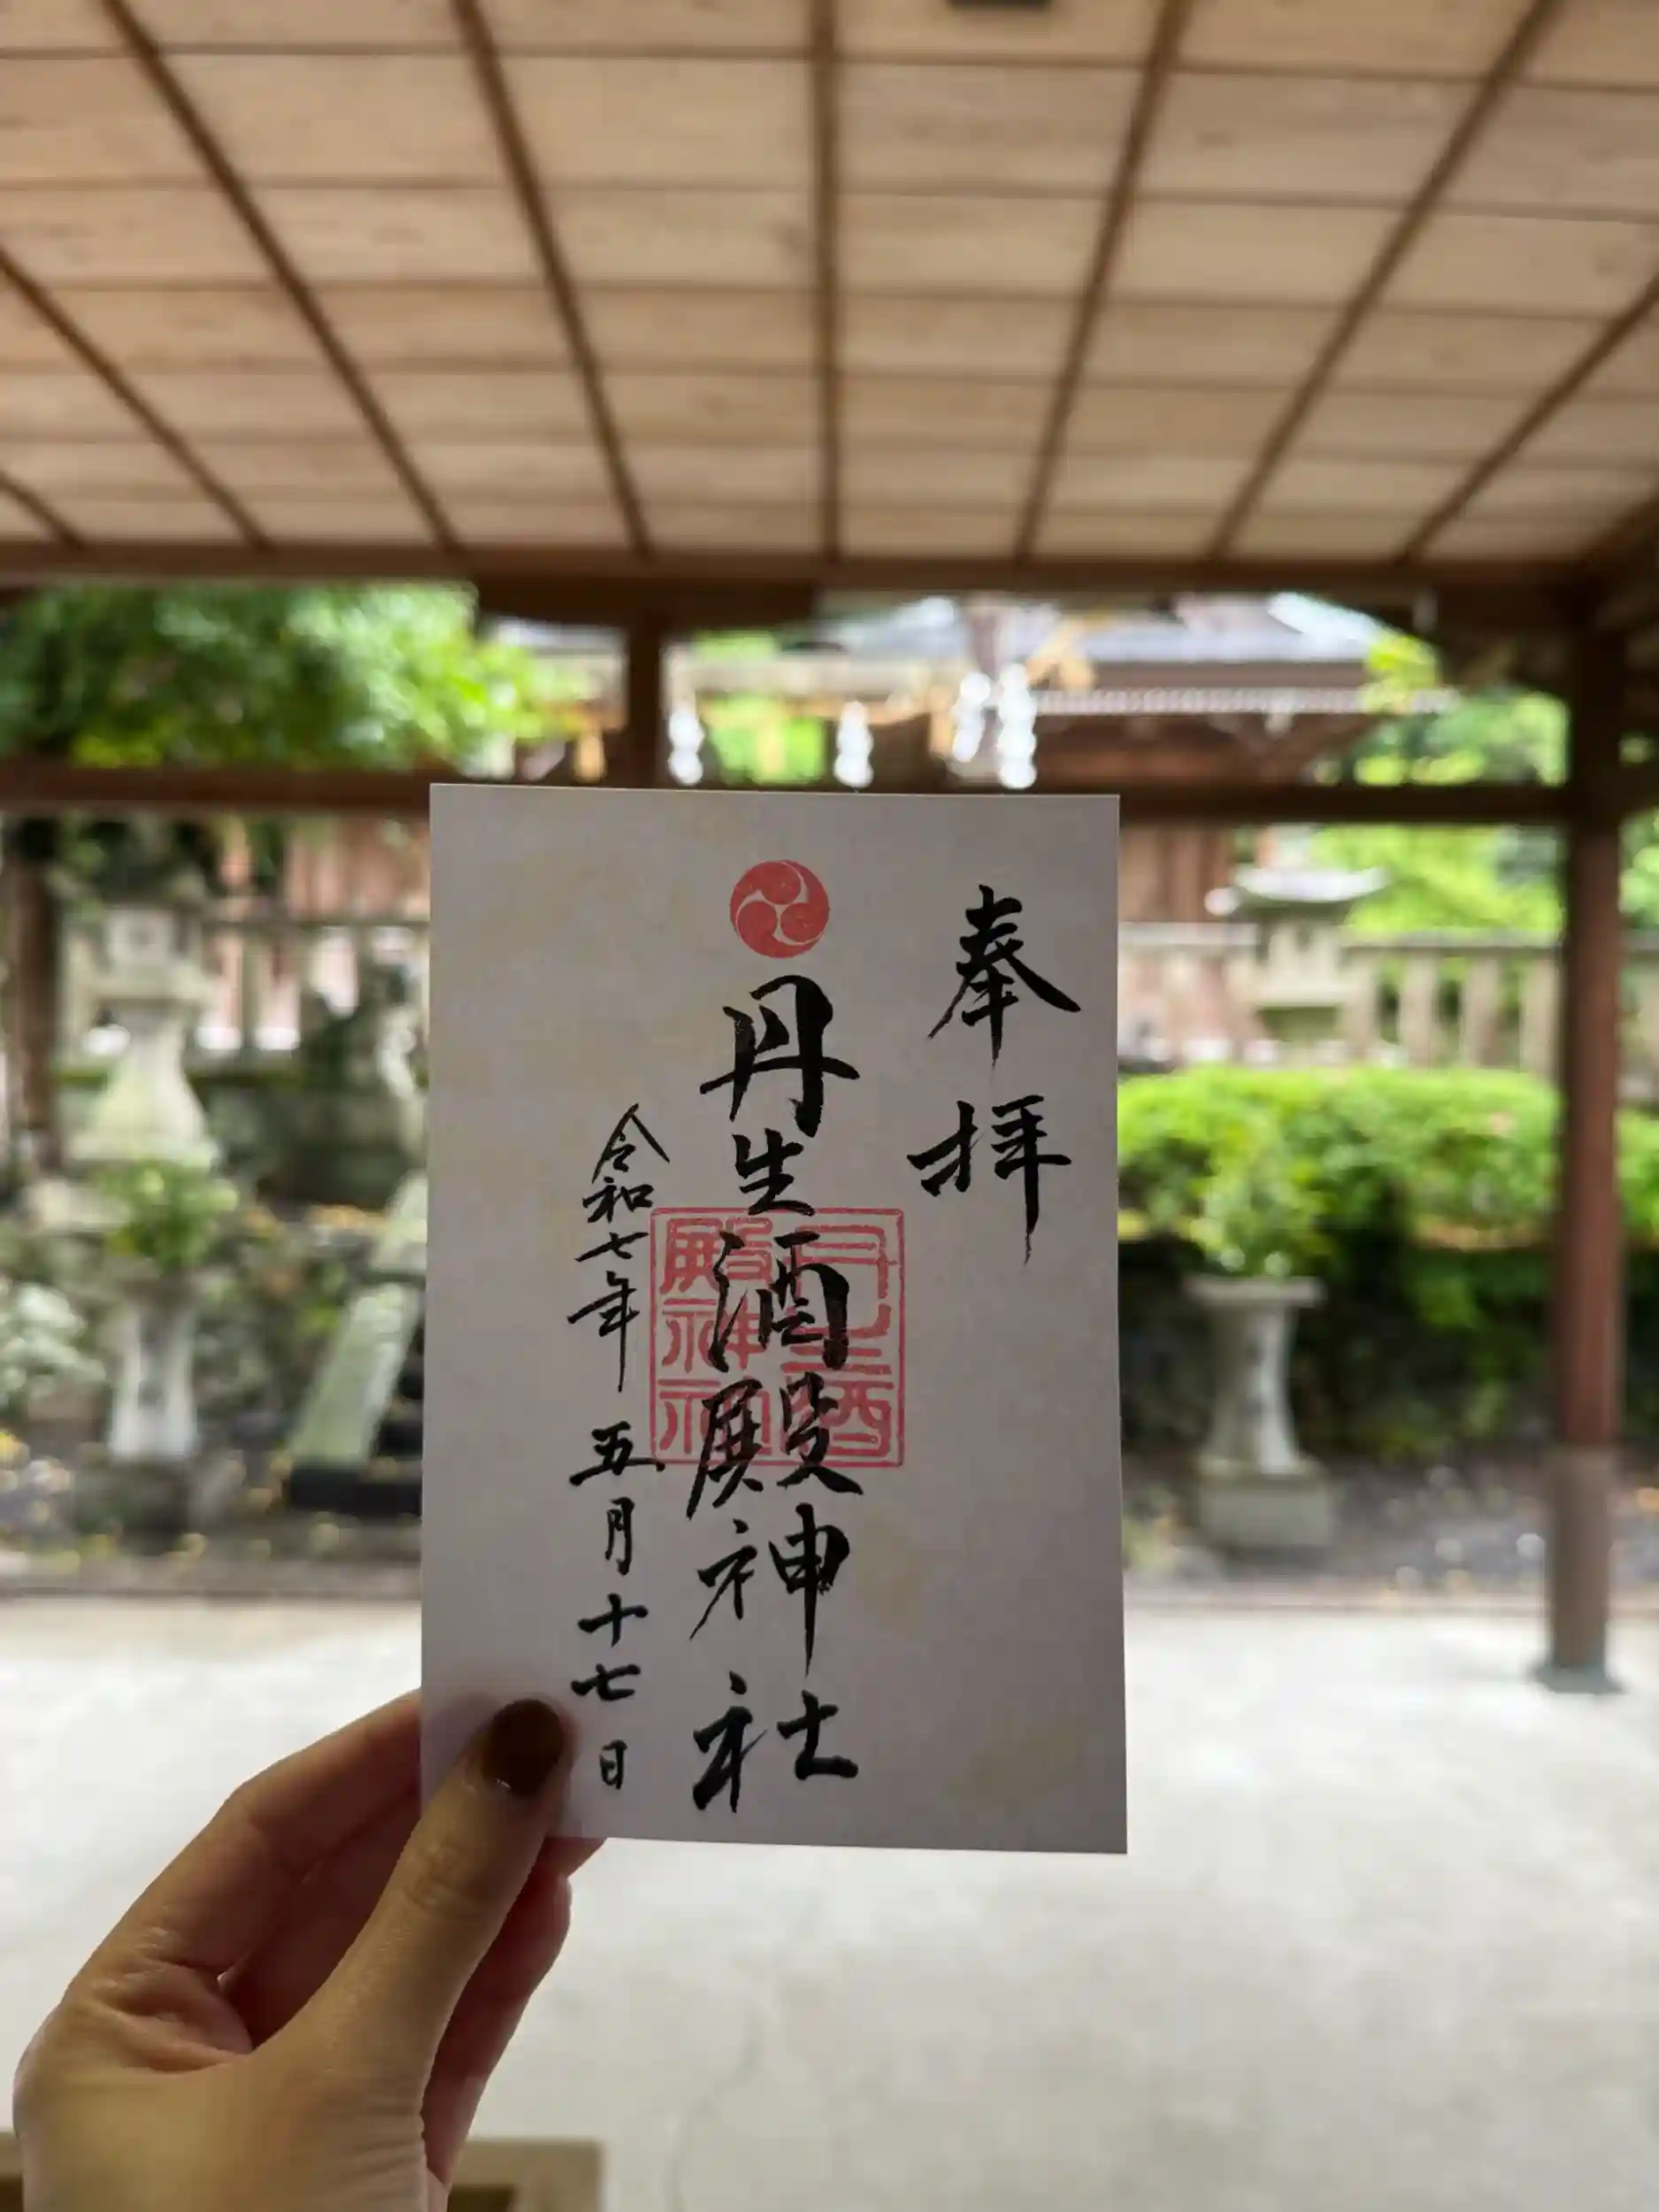 奉拝
丹生酒殿神社
丹生酒殿神社
令和七年 五月十七日